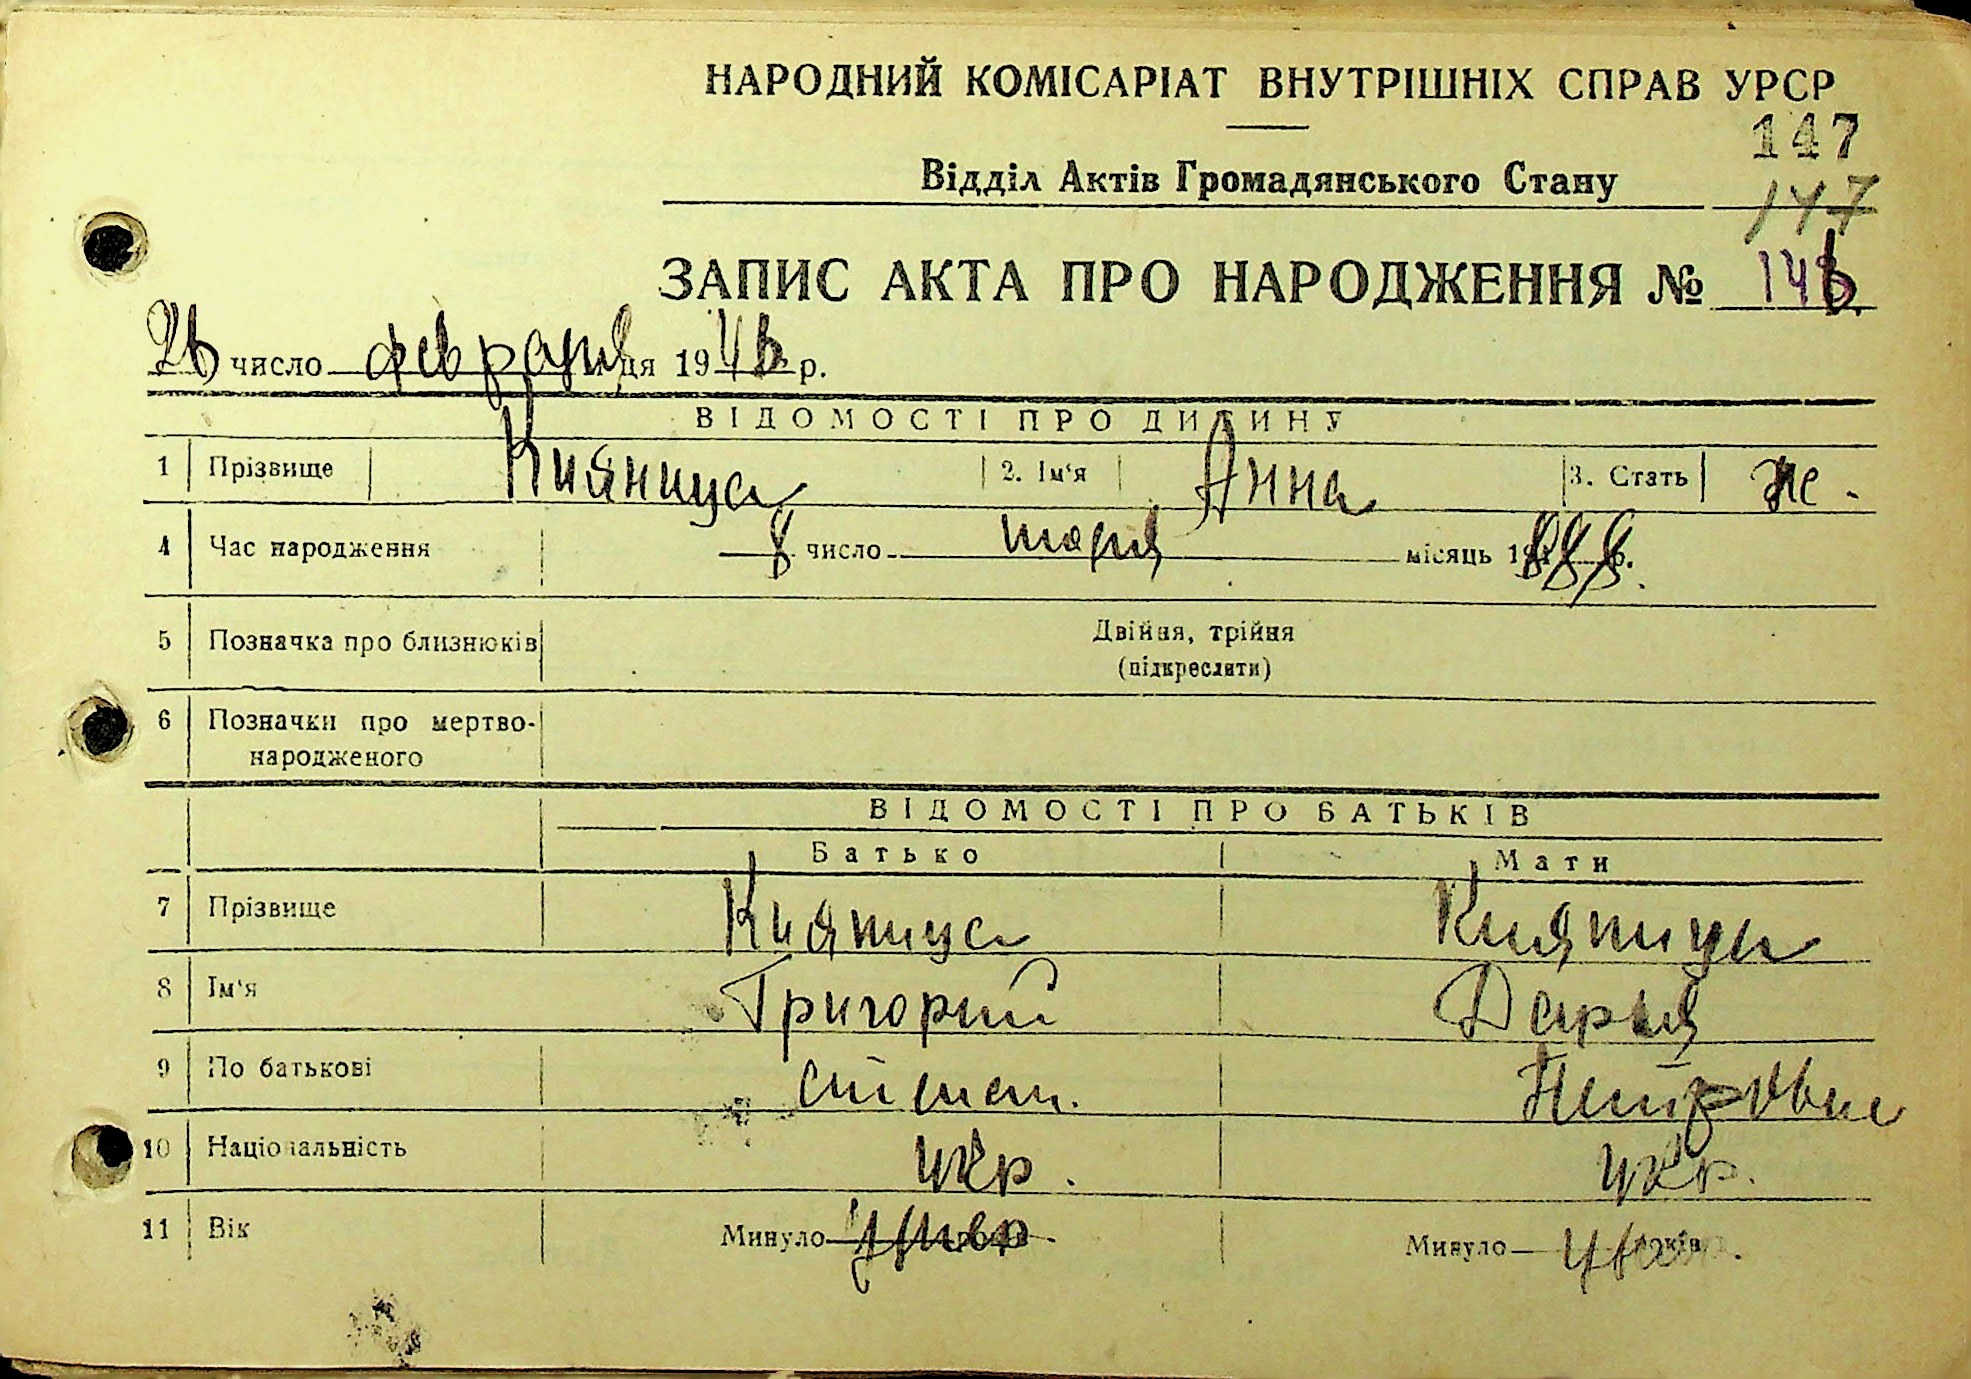 НАРОДНИЙ КОМІСАРІАТ ВНУТРІШНІХ СПРАВ УРСР
147
Відділ Актів Громадянського Стану
147
ЗАПИС АКТА ПРО НАРОДЖЕННЯ № 146.
26 число февраля ця 1946 р.
ВІДОМОСТІ ПРО ДИТИНУ
1 Прізвище Кияница 2. Ім'я Анна 3. Стать же.
4 Час народження 8 число місяць 1888 р.
5 Позначка про близнюків Двійня, трійня
(підкреслити)
6 Позначки про мертво-
народженого
ВІДОМОСТІ ПРО БАТЬКІВ
Батько Мати
7 Прізвище Кияница Кияница
8 Ім'я Григорий Дарья
9 По батькові степан. Петровна
10 Національність укр. укр.
11 Вік Минуло умер років Минуло років